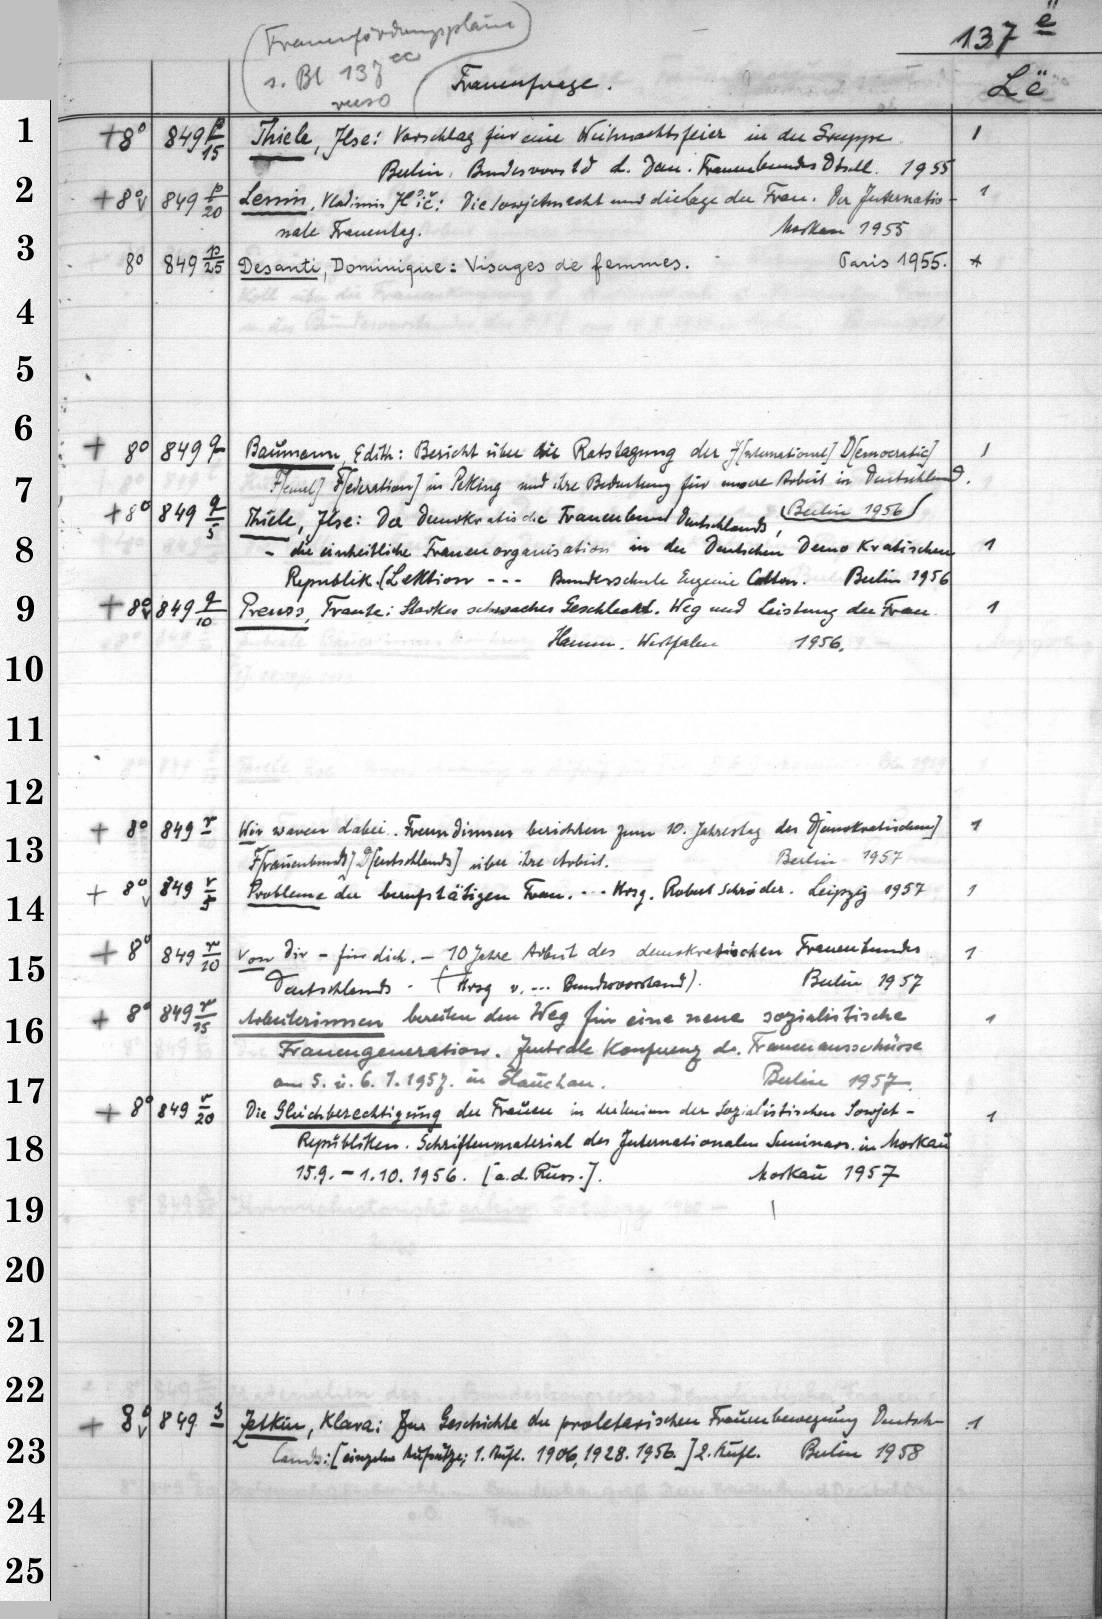 (Frauenförderungspläne
s. Bl 137 ee
verso)
137 ë
Frauenfrage.
Lë
1
+8° 849 p/15 Thiele, Ilse: Vorschlag für eine Weihnachtsfeier in der Gruppe 1
Berlin, Bundesvorstd d. Dem. Frauenbundes Dtschl. 1955
2
+8° 849 p/20 Lenin, Vladimir Il'ič: Die Sowjetmacht und die Lage der Frau. Der Internatio- 1
nale Frauentag. Moskau 1955
3
8° 849 p/25 Desanti, Dominique: Visages de femmes. Paris 1955. *
4
5
6
+ 8° 849 q Baumann, Edith: Bericht über die Ratstagung der I[nternational] D[emocratic] 1
F[emel] F[ederation] in Peking und ihre Bedeutung für unsere Arbeit in Deutschland.
7
Berlin 1956
+8° 849 q/5 Thiele, Ilse: Der Demokratische Frauenbund Deutschlands,
8
- die einheitliche Frauenorganisation in der Deutschen Demokratischen 1
Republik. (Lektion --- Bundesschule Eugenie Cotton. Berlin 1956
9
+8° 849 q/10 Preuss, Frante: Starkes schwaches Geschlecht. Weg und Leistung der Frau. 1
Hamm. Westfalen 1956.
10
11
12
13
+ 8° 849 r Wir waren dabei. Freundinnen berichten zum 10. Jahrestag des D[emokratischen] 1
F[rauenbunds] D[eutschlands] über ihre Arbeit. Berlin 1957
14
+ 8° 849 r/5 Probleme der berufstätigen Frau. --- Hrsg. Robert Schröder. Leipzig 1957 1
15
+ 8° 849 r/10 Von Dir - für dich. - 10 Jahre Arbeit des demokratischen Frauenbundes 1
Deutschlands. (Hrsg v. --- Bundesvorstand). Berlin 1957
16
+ 8° 849 r/15 Arbeiterinnen bereiten den Weg für eine neue sozialistische 1
Frauengeneration. Zentrale Konferenz d. Frauenausschüsse
17
am 5. u. 6. 1. 1957. in Glauchau. Berlin 1957.
+ 8° 849 r/20 Die Gleichberechtigung der Frauen in der Union der Sozialistischen Sowjet- 1
18
Republiken. Schriftenmaterial des Internationalen Seminars in Moskau
15.9. - 1.10. 1956. [a.d. Russ.]. Moskau 1957
19
20
21
22
23
+ 8° 849 s Zetkin, Klara: Zur Geschichte der proletarischen Frauenbewegung Deutsch- 1
lands: [einzelne Aufsätze; 1. Aufl. 1906, 1928. 1956.] 2. Aufl. Berlin 1958
24
25